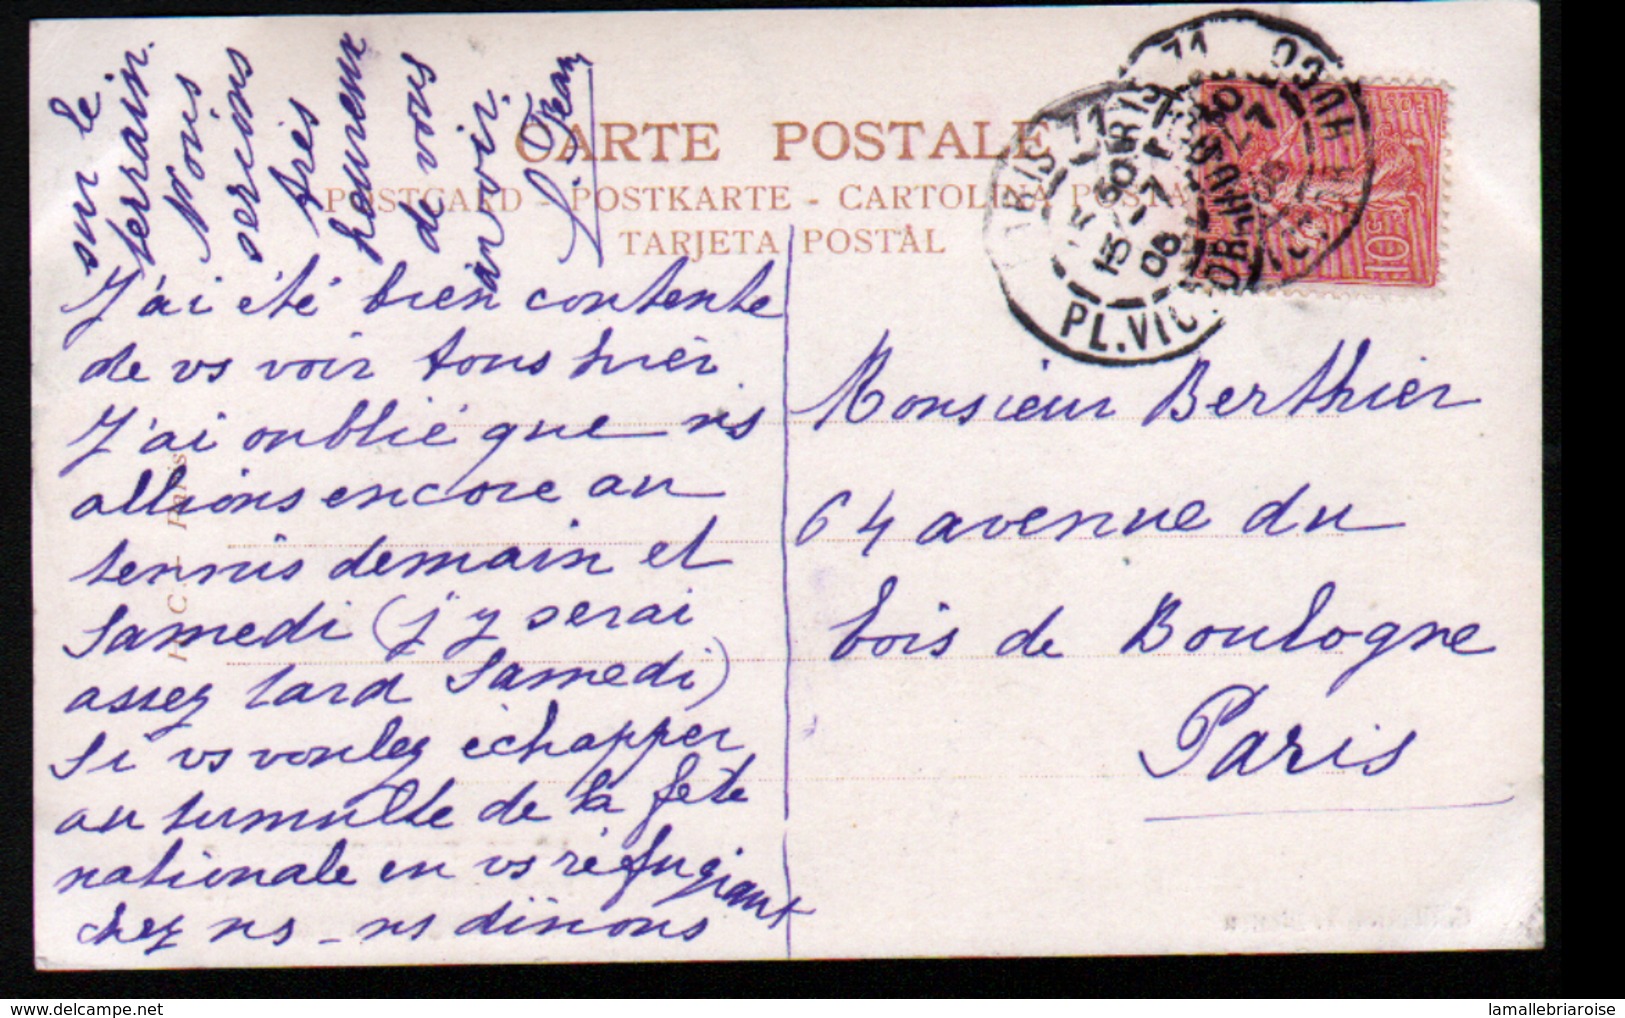 CARTE POSTALE
POSTCARD - POSTKARTE - CARTOLINA POSTA
TARJETA POSTAL
PARIS 71
15 30
7
06
PL. VICTOR HUGO
10c
J'ai été bien contente
de vs voir tous hier
J'ai oublié que ns
allions encore au
tennis demain et
Samedi (j'y serai
assez tard Samedi)
Si vs voulez échapper
au tumulte de la fête
nationale en vs réfugiant
chez ns - ns dînons
sur le
terrain.
Nous
serions
très
heureux
de vous
avoir.
J. Jean
Monsieur Berthier
64 avenue du
bois de Boulogne
Paris
lamallebriaroise